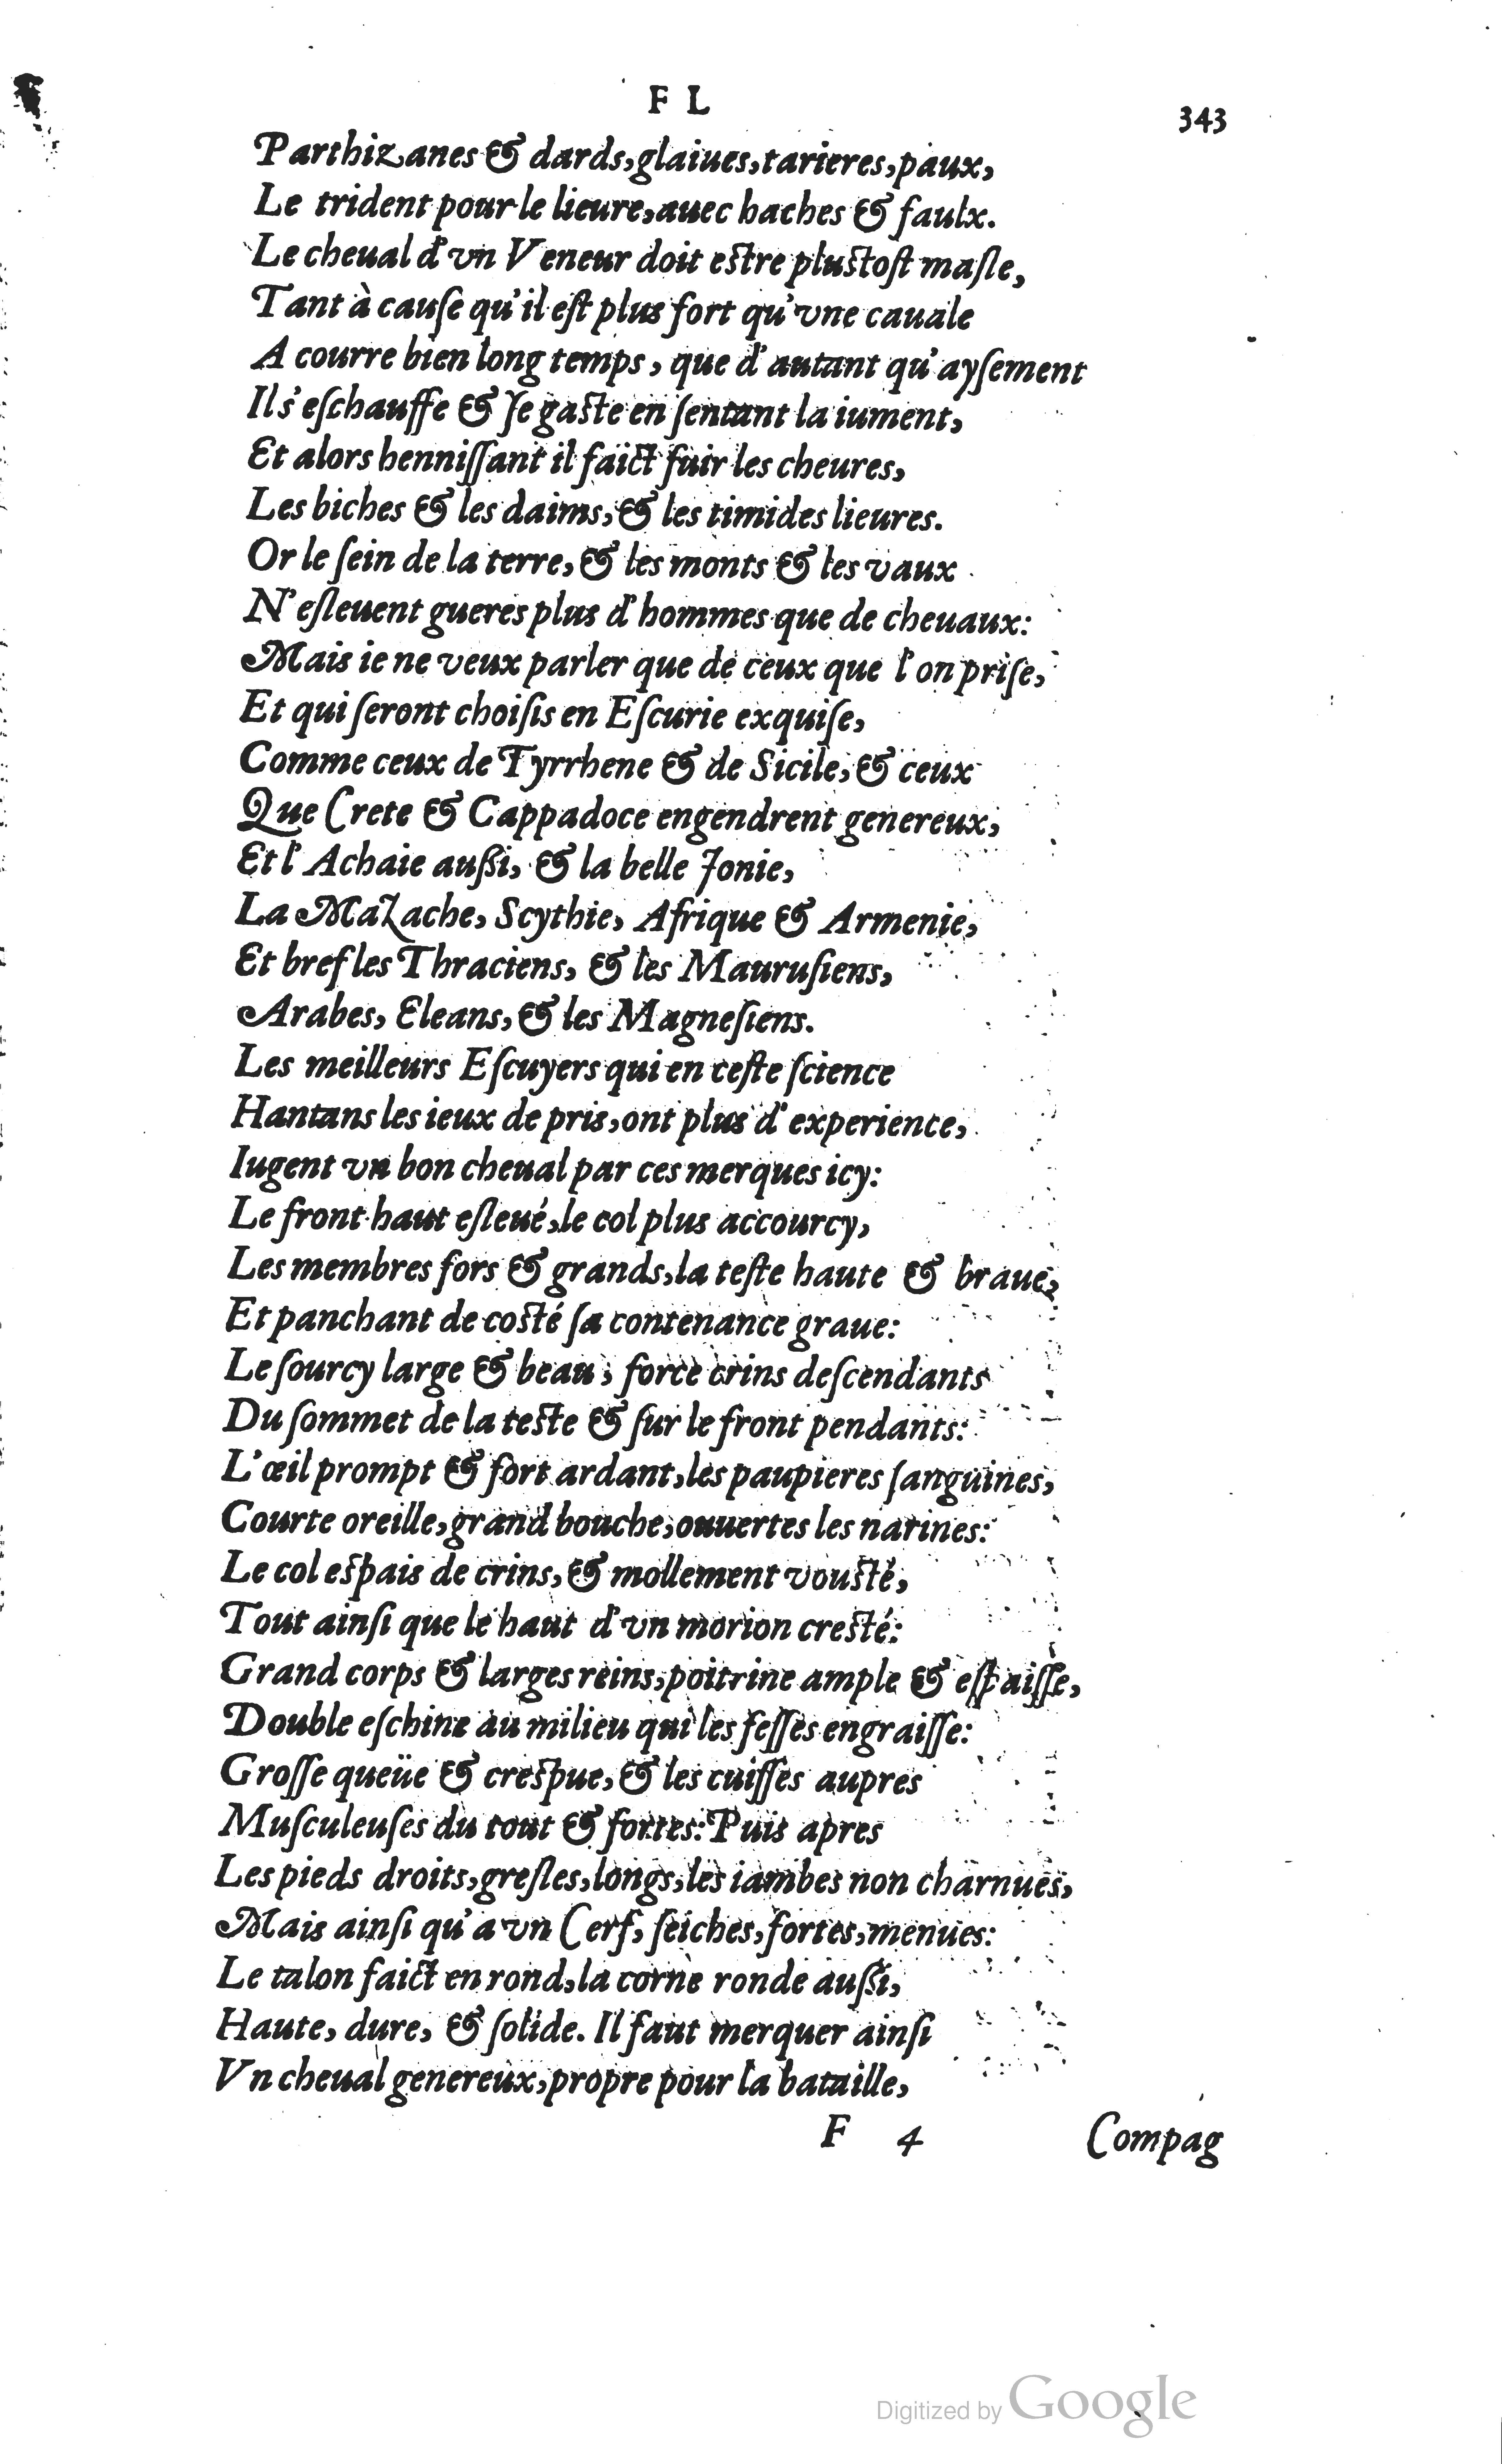 F L
343
Parthizanes & dards, glaiues, tarieres, paux,
Le trident pour le lieure, auec haches & faulx.
Le cheual d'vn Veneur doit estre plustoſt maſle,
Tant à cauſe qu'il eſt plus fort qu'vne cauale
A courre bien long temps, que d'autant qu'ayſement
Il s'eſchauffe & ſe gaste en ſentant la iument,
Et alors henniſſant il faict fuir les cheures,
Les biches & les daims, & les timides lieures.
Or le ſein de la terre, & les monts & les vaux
N'eſleuent gueres plus d'hommes que de cheuaux:
Mais ie ne veux parler que de ceux que l'on priſe,
Et qui ſeront choiſis en Eſcurie exquiſe,
Comme ceux de Tyrrhene & de Sicile, & ceux
Que Crete & Cappadoce engendrent genereux,
Et l'Achaie auſsi, & la belle Ionie,
La Mazache, Scythie, Afrique & Armenie,
Et bref les Thraciens, & les Mauruſiens,
Arabes, Eleans, & les Magneſiens.
Les meilleurs Eſcuyers qui en ceſte ſcience
Hantans les ieux de pris, ont plus d'experience,
Iugent vn bon cheual par ces merques icy:
Le front haut eſleué, le col plus accourcy,
Les membres fors & grands, la teſte haute & braue,
Et panchant de costé ſa contenance graue:
Le ſourcy large & beau, force crins deſcendants
Du ſommet de la teste & ſur le front pendants:
L'œil prompt & fort ardant, les paupieres ſanguines,
Courte oreille, grand bouche, ouuertes les narines:
Le col espais de crins, & mollement vousté,
Tout ainſi que le haut d'vn morion cresté:
Grand corps & larges reins, poitrine ample & eſpaiſſe,
Double eſchine au milieu qui les feſſes engraiſſe:
Groſſe queüe & crespue, & les cuiſſes aupres
Muſculeuſes du tout & fortes: Puis apres
Les pieds droits, greſles, longs, les iambes non charnues,
Mais ainſi qu'a vn Cerf, ſeiches, fortes, menues:
Le talon faict en rond, la corne ronde auſsi,
Haute, dure, & ſolide. Il faut merquer ainſi
Vn cheual genereux, propre pour la bataille,
F 4
Compag
Digitized by Google